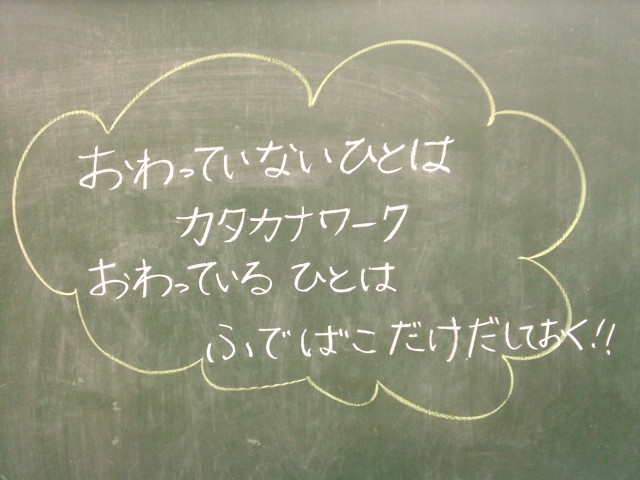 おわっていないひとは
カタカナワーク
おわっている ひとは
ふでばこだけだしておく!!